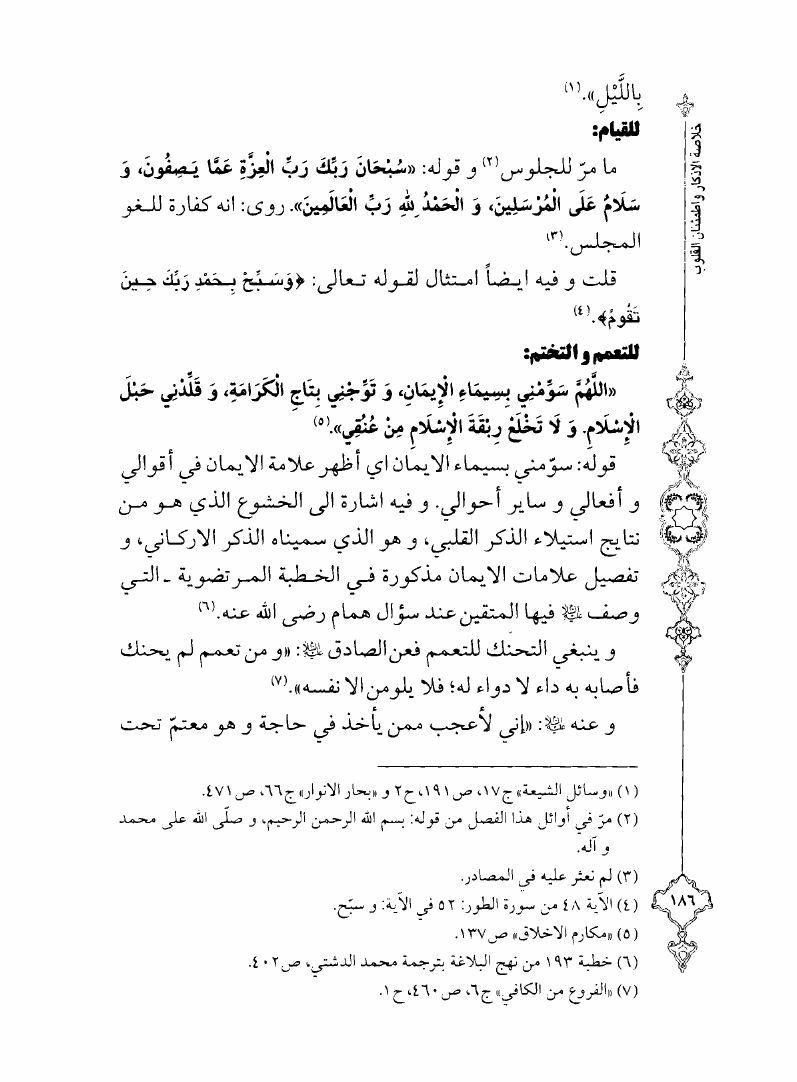 بِاللَّيْلِ».(١)
للقيام:
ما مرّ للجلوس(٢) و قوله: «سُبْحَانَ رَبِّكَ رَبِّ الْعِزَّةِ عَمَّا يَصِفُونَ، وَ
سَلَامٌ عَلَى الْمُرْسَلِينَ، وَ الْحَمْدُ لِلهِ رَبِّ الْعَالَمِينَ». روى: انه كفارة للغو
المجلس.(٣)
قلت و فيه ايضاً امتثال لقوله تعالى: ﴿وَسَبِّحْ بِحَمْدِ رَبِّكَ حِينَ
تَقُومُ﴾.(٤)
للتعمم و التختم:
«اللَّهُمَّ سَوِّمْنِي بِسِيمَاءِ الْإِيمَانِ، وَ تَوِّجْنِي بِتَاجِ الْكَرَامَةِ، وَ قَلِّدْنِي حَبْلَ
الْإِسْلَامِ. وَ لَا تَخْلَعْ رِبْقَةَ الْإِسْلَامِ مِنْ عُنُقِي».(٥)
قوله: سوّمني بسيماء الايمان اي أظهر علامة الايمان في أقوالي
و أفعالي و ساير أحوالي. و فيه اشارة الى الخشوع الذي هو من
نتايج استيلاء الذكر القلبي، و هو الذي سميناه الذكر الاركاني، و
تفصيل علامات الايمان مذكورة في الخطبة المرتضوية ـ التي
وصف ﷷ فيها المتقين عند سؤال همام رضى الله عنه.(٦)
و ينبغي التحنك للتعمم فعن الصادق ﷷ: «و من تعمم لم يحنك
فأصابه به داء لا دواء له؛ فلا يلومن الا نفسه».(٧)
و عنه ﷷ: «إني لأعجب ممن يأخذ في حاجة و هو معتمّ تحت
(١) «وسائل الشيعة» ج١٧، ص١٩١، ح٢ و «بحار الانوار» ج٦٦، ص٤٧١.
(٢) مرّ في أوائل هذا الفصل من قوله: بسم الله الرحمن الرحيم، و صلّى الله على محمد
و آله.
(٣) لم نعثر عليه في المصادر.
(٤) الآية ٤٨ من سورة الطور: ٥٢ في الآية: و سبّح.
(٥) «مكارم الاخلاق» ص١٣٧.
(٦) خطبة ١٩٣ من نهج البلاغة بترجمة محمد الدشتي، ص٤٠٢.
(٧) «الفروع من الكافي» ج٦، ص٤٦٠، ح١.
خلاصة الاذكار واطمئنان القلوب
١٨٦